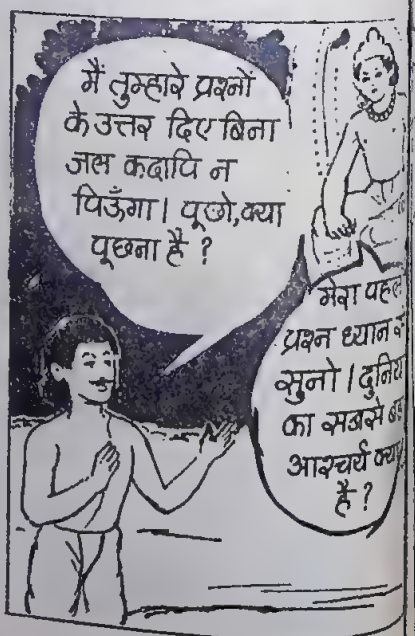 मैं तुम्हारे प्रश्नों
के उत्तर दिए बिना
जल कदापि न
पिऊँगा। पूछो, क्या
पूछना है ?
मेरा
प्रश्न ध्यान
सुनो। दुनिया
का सबसे
आश्चर्य क्या
है ?